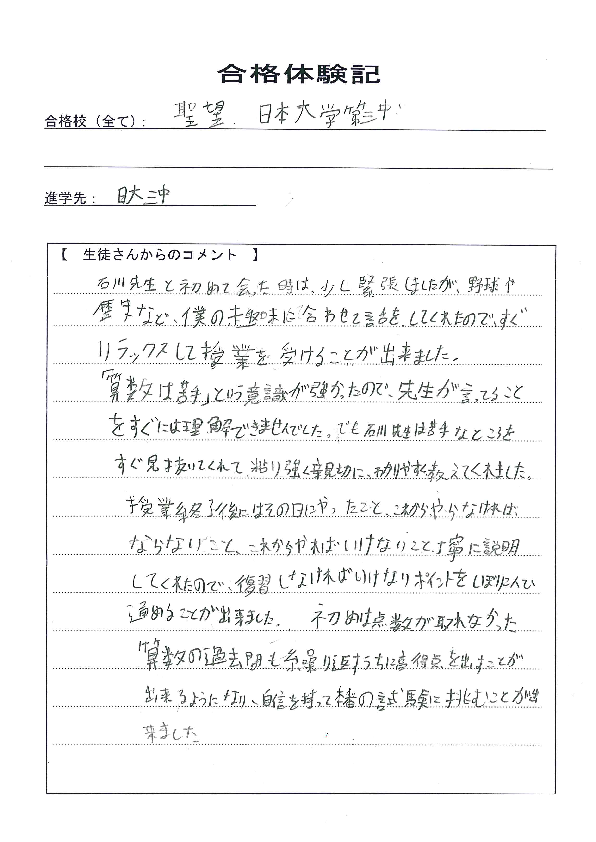 合格体験記
合格校（全て）： 聖望、日本大学第三中
進学先： 日大三中
【 生徒さんからのコメント 】
石川先生と初めて会った時は、少し緊張しましたが、野球や
歴史など、僕の趣味に合わせて話をしてくれたので、すぐ
リラックスして授業を受けることが出来ました。
「算数は苦手」という意識が強かったので、先生が言ってること
をすぐには理解できませんでした。でも石川先生は苦手なところを
すぐ見抜いてくれて、粘り強く親切に、わかりやすく教えてくれました。
授業終了後にはその日にやったこと、これからやらなければ
ならないこと、これからやればいけないこと丁寧に説明
してくれたので、復習しなければいけないポイントをしぼり
進めることが出来ました。 初めは点数が取れなかった
算数の過去問も繰り返すうちに高得点を出すことが
出来るようになり、自信を持って本番の試験に挑むことが出
来ました